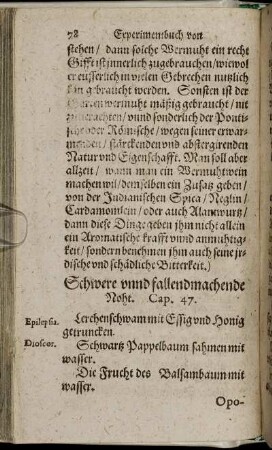 78 Experimentbuch von
stehen / dann solche Wermuht ein recht
Gifft ist innerlich zugebrauchen / wiewol
er eusserlich in vielen Gebrechen nutzlich
kan gebraucht werden. Sonsten ist der
wermuht mäßig gebraucht / nit
zuverachten / vnnd sonderlich der Ponti-
sche oder Römische / wegen seiner erwar-
menden / stärckenden vnd abstergirenden
Natur vnd Eigenschafft. Man soll aber
allzeit / wann man ein Vermuhtwein
machen wil / demselben ein Zusatz geben /
von der Indianischen Spica / Neglin /
Cardamomlein / oder auch Alantwurtz /
dann diese Dinge geben jhm nicht allein
ein Aromatische krafft vnnd anmuhtig-
keit / sondern benehmen jhm auch seine jr-
dische vnd schädliche Bitterkeit.)
Schwere vnnd fallendmachende
Noht. Cap. 47.
Epilepsia. Lerchenschwam mit Essig vnd Honig
getruncken.
Dioscor. Schwartz Pappelbaum sahmen mit
wasser.
Die Frucht des Balsambaum mit
wasser.
Opo-